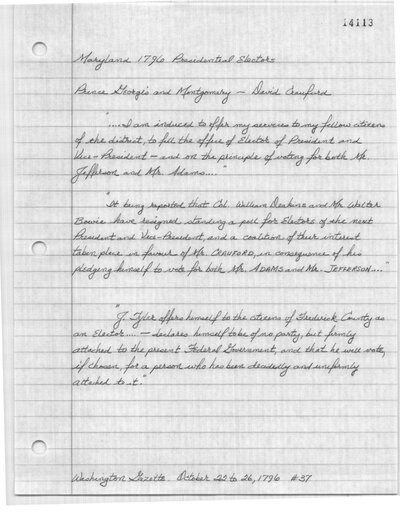 14113
Maryland 1796 Presidential Electors
Prince George's and Montgomery — David Craufurd
"....I am induced to offer my services to my fellow citizens
of the district, to fill the office of Elector of President and
Vice-President — and on the principle of voting for both Mr.
Jefferson and Mr. Adams...."
"It being reported that Col. William Deakins and Mr. Walter
Bowie have resigned standing a poll for Electors of the next
President and Vice-President, and a coalition of their interest
taken place in favour of Mr. CRAUFORD, in consequence of his
pledging himself to vote for both Mr. ADAMS and Mr. JEFFERSON...."
"J. Tyler offers himself to the citizens of Frederick County as
an Elector.... — declares himself to be of no party, but firmly
attached to the present Federal Government, and that he will vote,
if chosen, for a person who has been decidedly and uniformly
attached to it."
Washington Gazette. October 22 to 26, 1796 #37